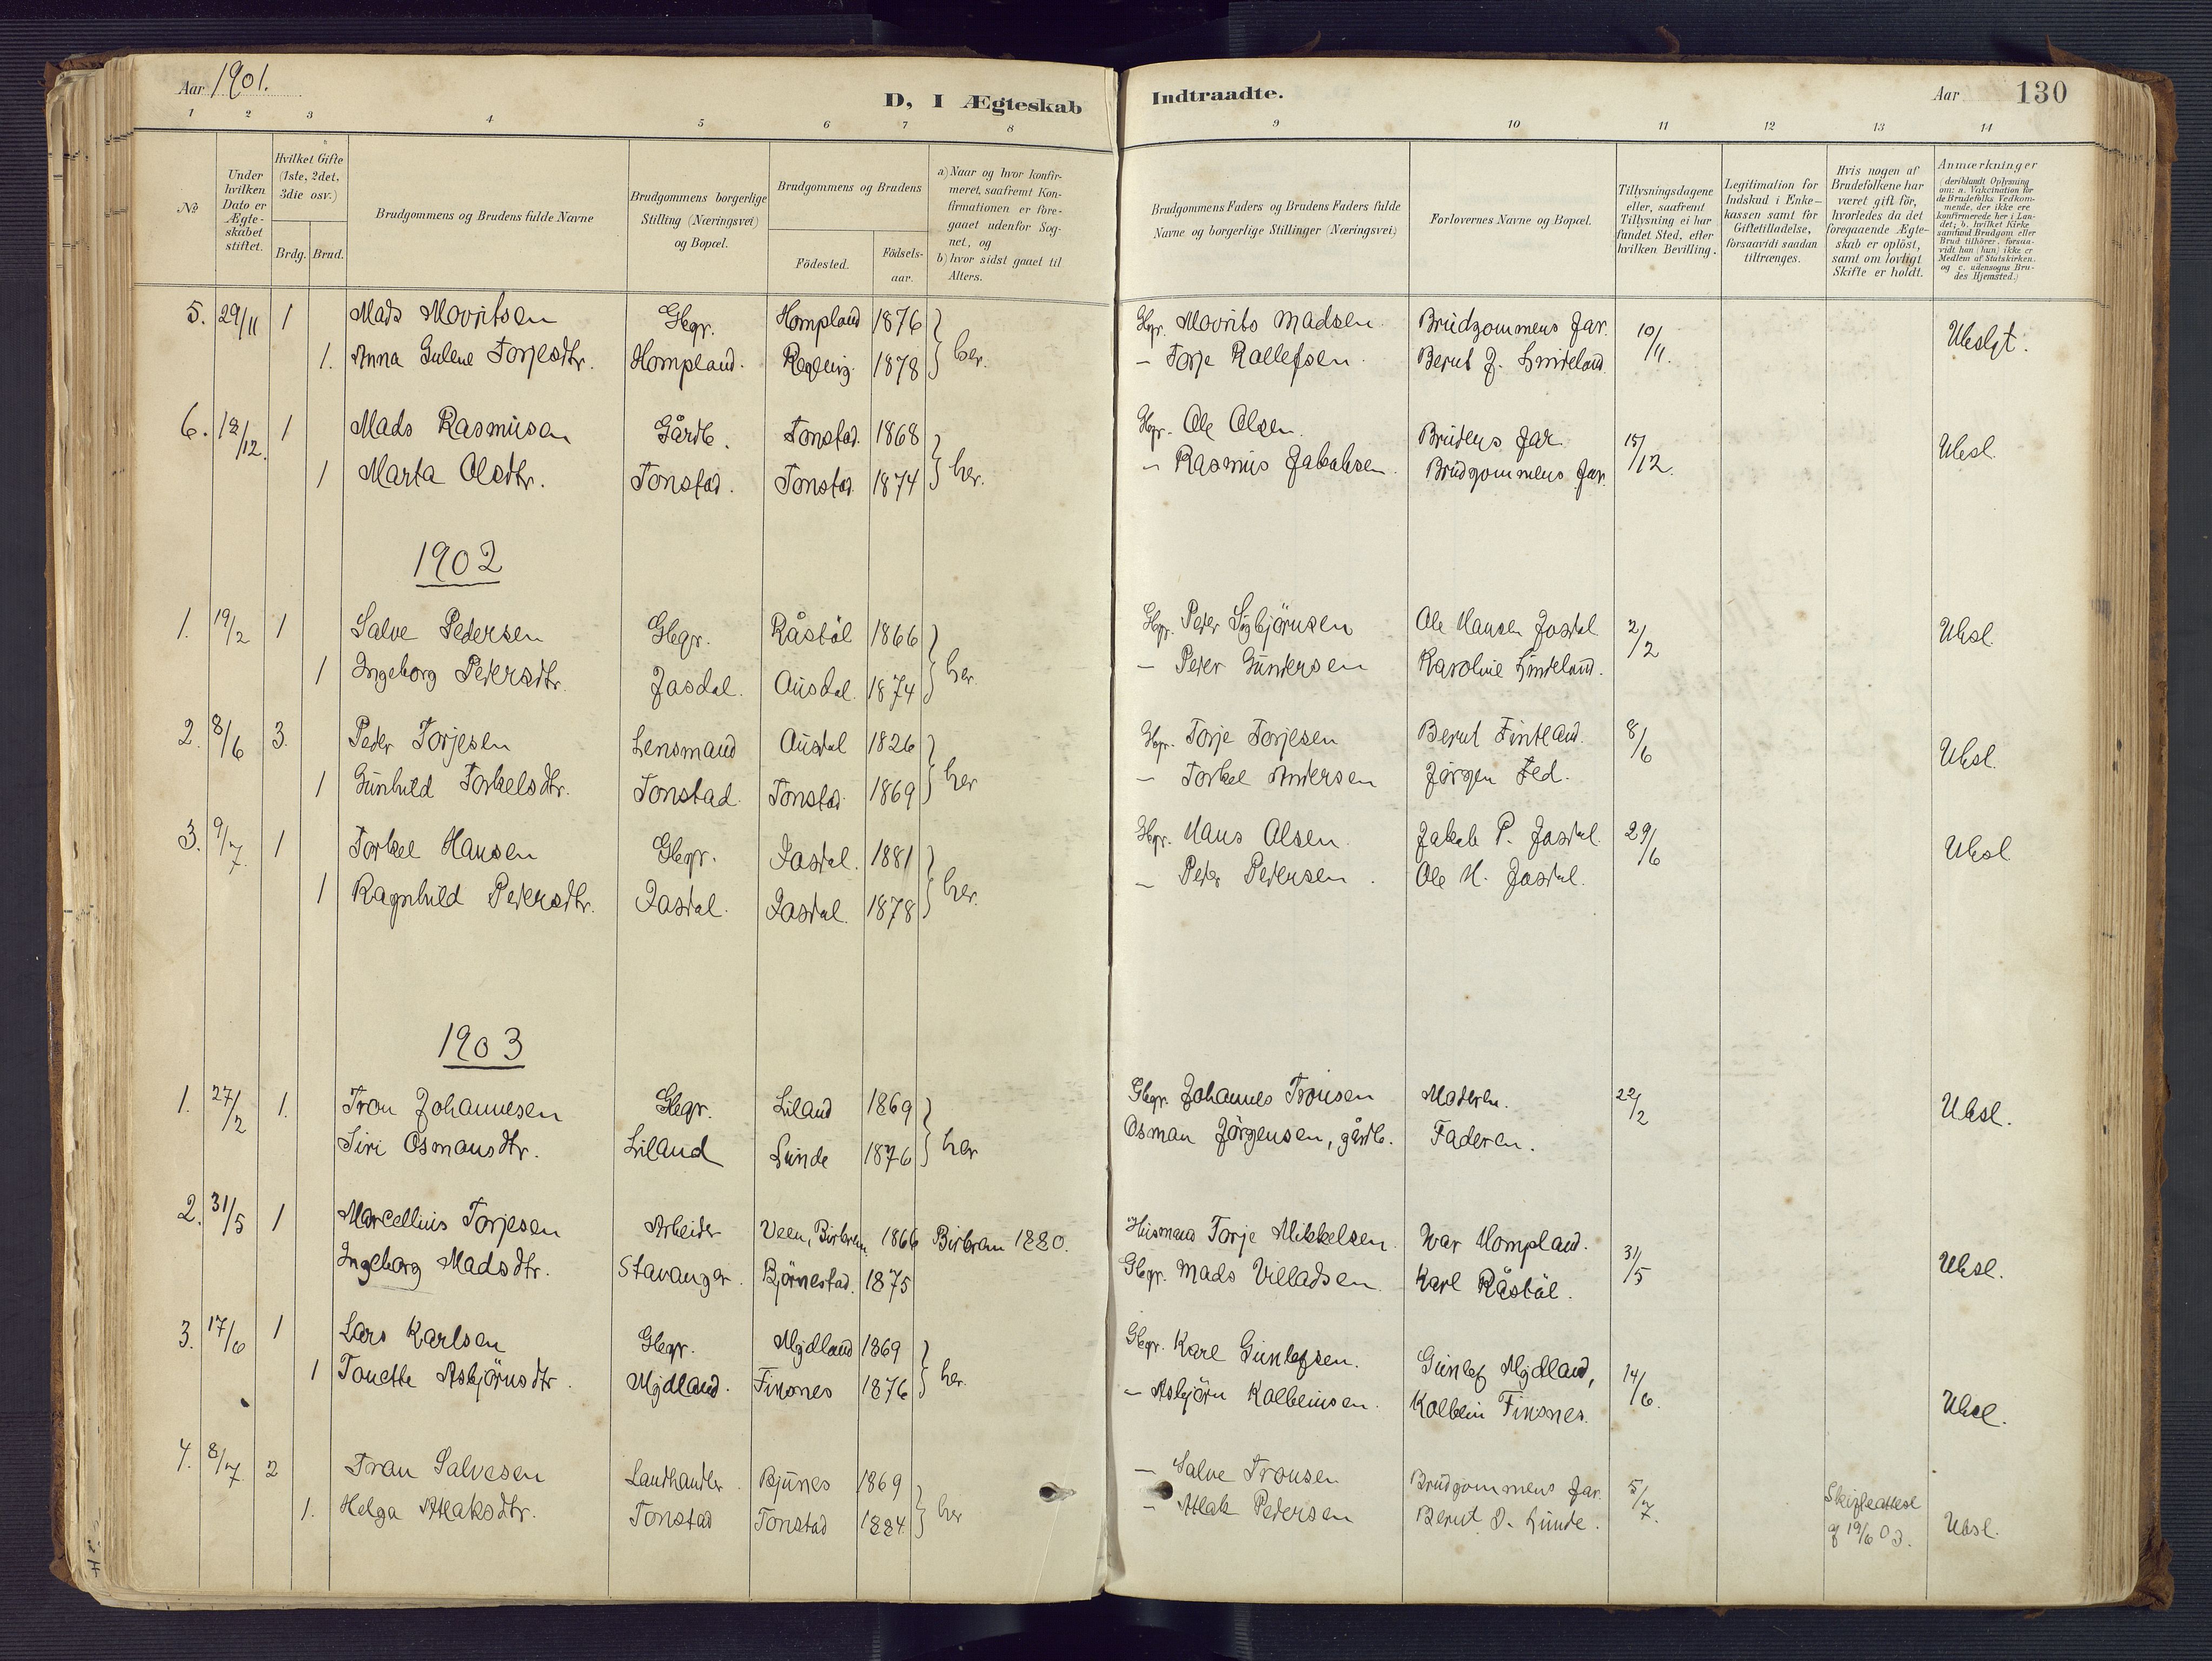 Aar 1901.
D, I Ægteskab
Indtraadte.
Aar
130
1 2 3 4 5 6 7 8 9 10 11 12 13 14
No
Under hvilken Dato er Ægteskabet stiftet.
Hvilket Gifte (1ste, 2det, 3die osv.)
Brdg. Brud.
Brudgommens og Brudens fulde Navne
Brudgommens borgerlige Stilling (Næringsvei) og Bopæl.
Brudgommens og Brudens
Födested.
Födsels-aar.
a) Naar og hvor konfirmeret, saafremt Konfirmationen er foregaaet udenfor Sognet, og
b) hvor sidst gaaet til Alters.
Brudgommens Faders og Brudens Faders fulde Navne og borgerlige Stillinger (Næringsvei)
Forlovernes Navne og Bopæl.
Tillysningsdagene eller, saafremt Tillysning ei har fundet Sted, efter hvilken Bevilling.
Legitimation for Indskud i Enkekassen samt for Giftetilladelse, forsaavidt saadan tiltrænges.
Hvis nogen af Brudefolkene har været gift för, hvorledes da det foregaaende Ægteskab er oplöst, samt om lovligt Skifte er holdt.
Anmærkninger
(deriblandt Oplysning om: a. Vakcination for de Brudefolks Vedkommende, der ikke ere konfirmerede her i Landet; b. hvilket Kirkesamfund Brudgom eller Brud tilhörer, forsaavidt han (hun) ikke er Medlem af Statskirken, og c. udensogns Brudes Hjemsted.)
5. 29/11 1 Mads Movritsen Gbgr. Hompland 1876 Gbgr. Movrits Madsen. Brudgommens far. 10/11. Ubeslgt.
1. Anna Gulene Torjesdtr. Hompland. 1878 her. – Torje Rollefsen. Berut J. Lindeland
6. 18/12. 1 Mads Rasmusen Gårdb. Tonstad. 1868 Gbgr. Ole Olsen. Brudens far. 15/12. Ubesl.
1 Marta Olsdtr. Tonstad. Tonstad. 1874 her. – Rasmus Jakobsen. Brudgommens far.
1902
1. 19/2 1 Salve Pedersen Gbgr. Råstöl 1866 Gbgr. Peder Sigbjörnsen Ole Hansen Josdal 2/2 Ubesl.
1 Ingeborg Pedersdtr. Josdal. Ausdal. 1874 her. – Peder Gundersen Karoline Lindeland.
2. 8/6 3. Peder Torjesen Lensmand Ausdal 1826 Gbgr. Torje Torjesen Berut Fintland. 8/6 Ubesl.
1 Gunhild Torkelsdtr. Tonstad. Tonstad. 1869 her – Torkel Andersen Jörgen Fed.
3. 9/7. 1 Torkel Hansen Gbgr. Josdal. 1881 Gbgr. Hans Olsen. Jakob P. Josdal. 29/6 Ubesl.
1 Ragnhild Pedersdtr. Josdal. Josdal. 1878 her. – Peder Pedersen. Ole H. Josdal.
1903
1. 27/2 1. Tron Johannesen Gbgr. Liland 1869 Gbgr. Johannes Tronsen Moderen. 22/2 Ubesl.
Siri Osmonsdtr. Liland Lunde 1876 her Osman Jörgensen, gårdb. Faderen.
2. 31/5 1 Marcellius Torjesen Arbeider Veen, Birkrem. 1866 Birkrem 1880. Husmand Torje Mikkelsen. Ivar Hompland. 31/5 Ubesl.
Ingeborg Madsdtr. Stavanger. Björnestad. 1875 Gbgr. Mads Villadsen. Karl Råstöl.
3. 17/6 1 Lars Karlsen Gbgr. Mydland 1869 Gbgr. Karl Gunlefsen. Gunlef Mydland, 14/6. Ubesl.
1 Tonette Asbjörnsdtr. Mydland. Finsnes 1876 her. – Asbjörn Kolbeinsen. Kolbein Finsnes.
4. 8/7 2 Tron Salvesen Landhandler. Bjunes 1869 – Salve Tronsen Brudgommens far. 5/7. Skifteattest af 19/6 03. Ubesl.
1. Helga Atlaksdtr. Tonstad Tonstad 1884. her – Atlak Pedersen Berut O. Lunde.